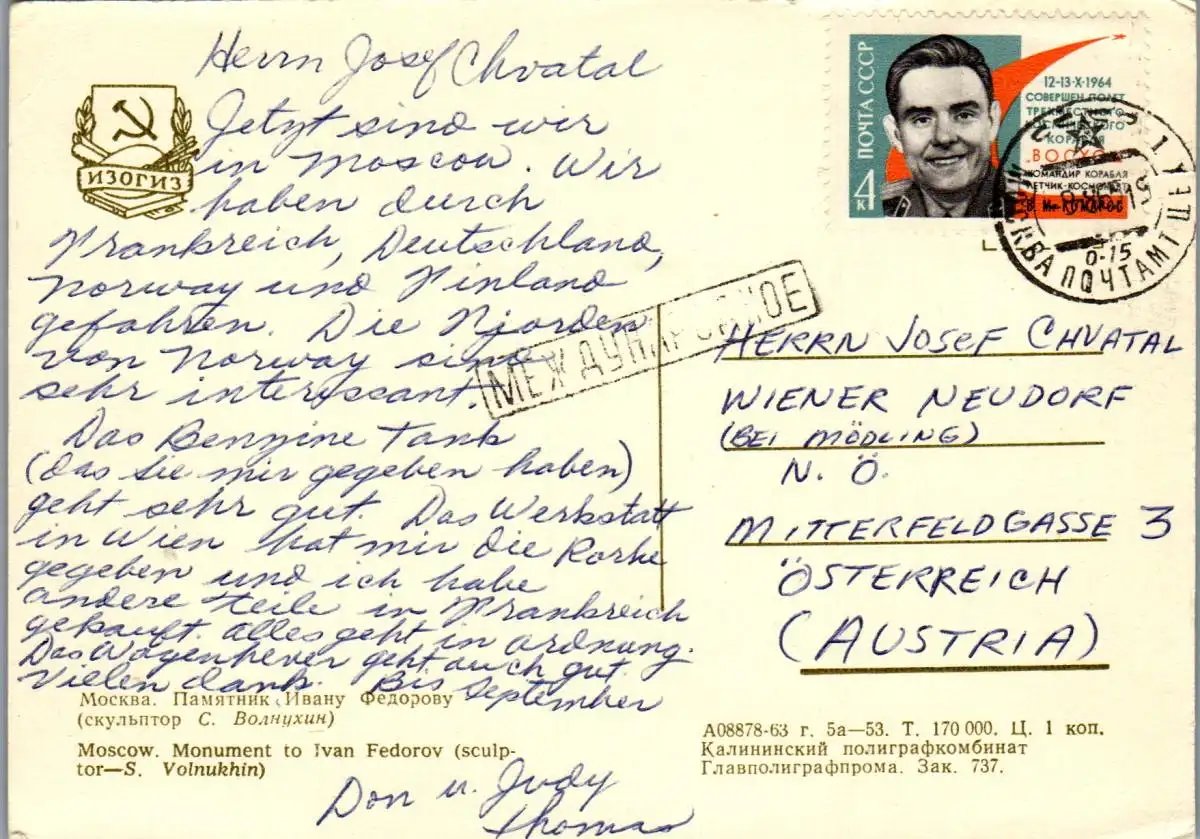 Herrn Josef Chvatal
Jetzt sind wir
in Moscow. Wir
haben durch
Frankreich, Deutschland,
Norway und Finland
gefahren. Die Fjorden
von Norway sind
sehr interessant.
Das Benzine Tank
(das sie mir gegeben haben)
geht sehr gut. Das Werkstatt
in Wien hat mir die
gegeben und ich habe
andere teile in Frankreich
gekauft. alles geht in ordnung.
Das Wagenhever geht auch gut.
Vielen dank. Bis September
Don u. Judy
Thomas
ИЗОГИЗ
Москва. Памятник Ивану Федорову
(скульптор С. Волнухин)
Moscow. Monument to Ivan Fedorov (sculp-
tor—S. Volnukhin)
ПОЧТА СССР
4 к
12-13·X·1964
СОВЕРШЕН ПОЛЕТ
ТРЕХМЕСТНОГО
КОСМИЧЕСКОГО
КОРАБЛЯ
ВОСХОД
КОМАНДИР КОРАБЛЯ
ЛЕТЧИК-КОСМОНАВТ
В. М. КОМАРОВ
МОСКВА ПОЧТАМТ
0-15
МЕЖДУНАРОДНОЕ
HERRN JOSEF CHVATAL
WIENER NEUDORF
(BEI MÖDLING)
N. Ö.
MITTERFELDGASSE 3
ÖSTERREICH
(AUSTRIA)
А08878-63 г. 5а—53. Т. 170 000. Ц. 1 коп.
Калининский полиграфкомбинат
Главполиграфпрома. Зак. 737.